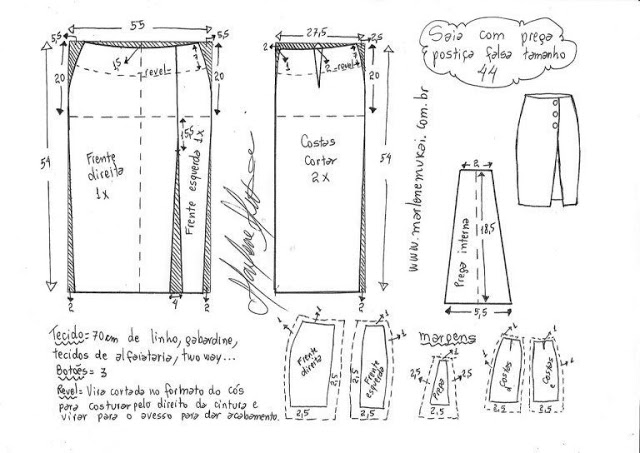 Saia com prega
postiça falsa tamanho
44
55
5,5
5,5
20
20
54
1,5
revel
3
5,5
Frente
direita
1x
Frente esquerda 1x
2
4
2
27,5
2
2,5
1
2
revel
3
20
54
Costas
Cortar
2x
2
www.marlenemukai.com.br
2
Prega interna
18,5
5,5
Tecido = 70cm de linho, gabardine,
tecidos de alfaiataria, two way...
Botões = 3
Revel = Vira cortada no formato do cós
para costurar pelo direito da cintura e
virar para o avesso para dar acabamento.
margens
1
1
Frente
direita
2,5
2,5
1
1
Frente
esquerda
2,5
2,5
1
2,5
Prega
2,5
2,5
1
1
Costas
d
2,5
2,5
1
1
Costas
e
2,5